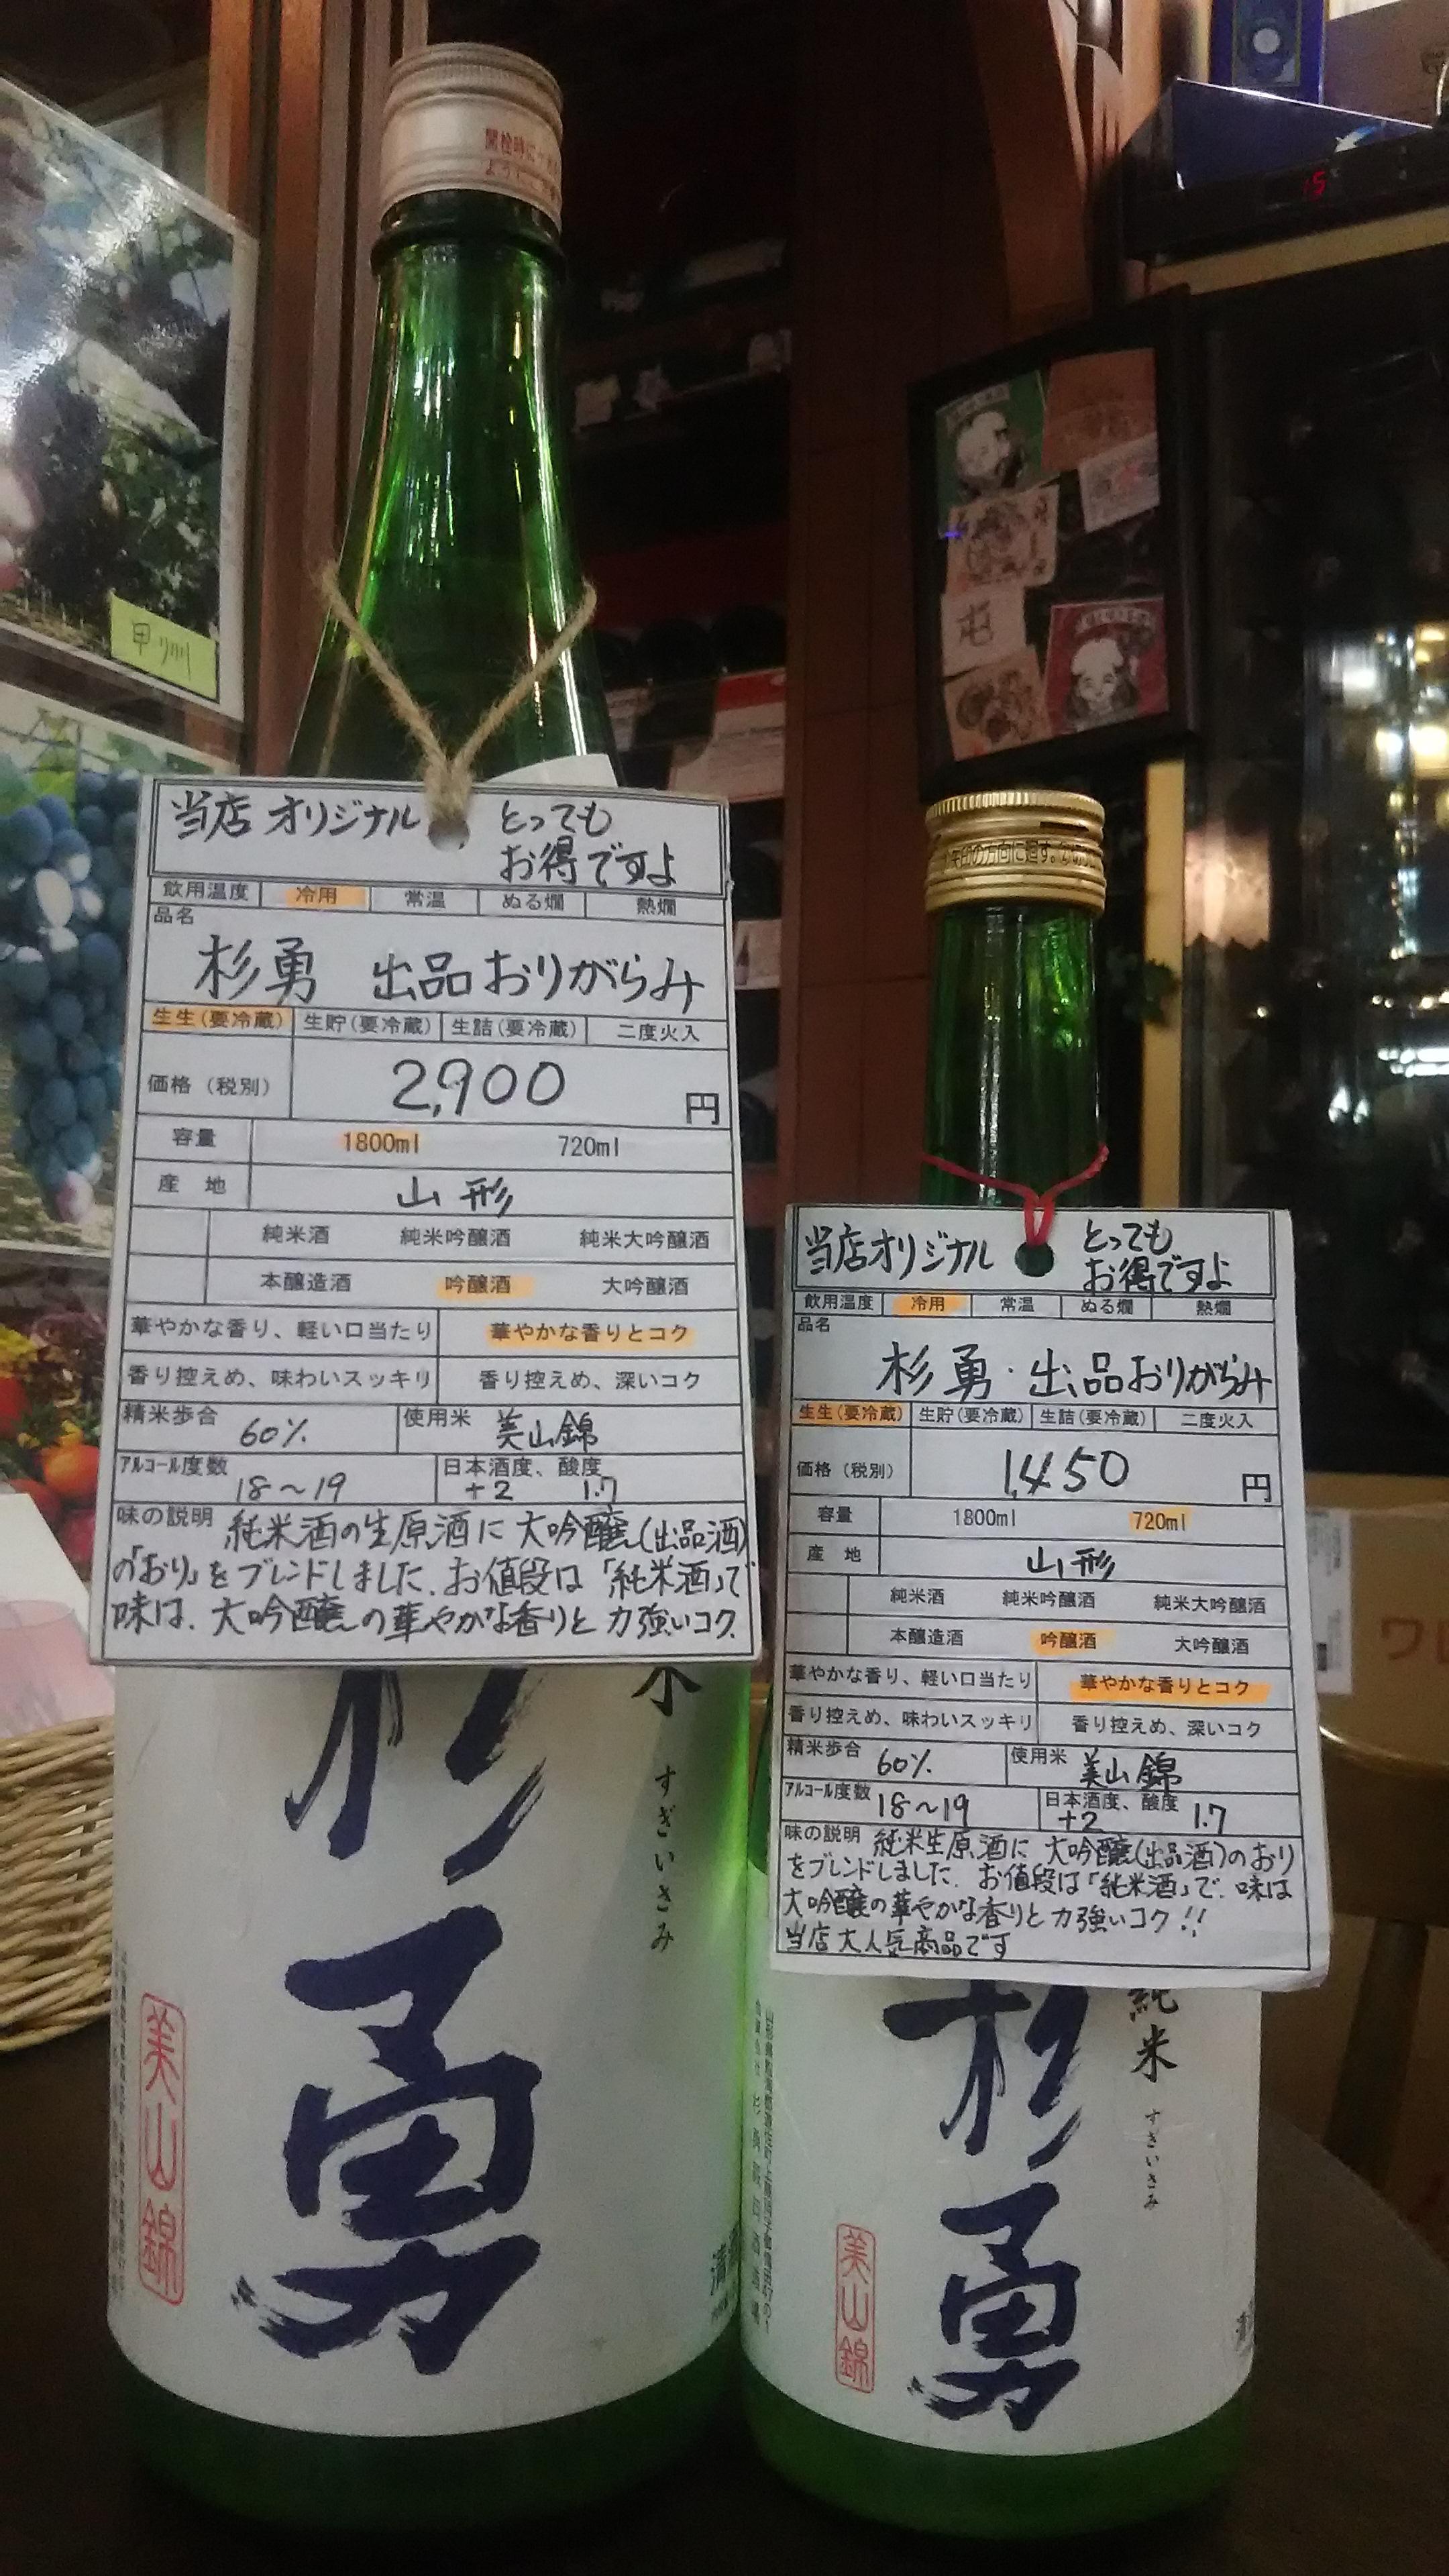 開栓時に
ように
甲州
当店オリジナル とっても
お得ですよ
飲用温度 冷用 常温 ぬる燗 熱燗
品名
杉勇 出品おりがらみ
生生(要冷蔵) 生貯(要冷蔵) 生詰(要冷蔵) 二度火入
価格(税別) 2,900 円
容量 1800ml 720ml
産地 山形
純米酒 純米吟醸酒 純米大吟醸酒
本醸造酒 吟醸酒 大吟醸酒
華やかな香り、軽い口当たり 華やかな香りとコク
香り控えめ、味わいスッキリ 香り控えめ、深いコク
精米歩合 60% 使用米 美山錦
アルコール度数 18〜19 日本酒度、酸度 +2 1.7
味の説明 純米酒の生原酒に大吟醸(出品酒)
の「おり」をブレンドしました。お値段は「純米酒」で
味は、大吟醸の華やかな香りと力強いコク。
杉勇
すぎいさみ
美山錦
清
15
屯
矢印の方向に
当店オリジナル とっても
お得ですよ
飲用温度 冷用 常温 ぬる燗 熱燗
品名
杉勇・出品おりがらみ
生生(要冷蔵) 生貯(要冷蔵) 生詰(要冷蔵) 二度火入
価格(税別) 1,450 円
容量 1800ml 720ml
産地 山形
純米酒 純米吟醸酒 純米大吟醸酒
本醸造酒 吟醸酒 大吟醸酒
華やかな香り、軽い口当たり 華やかな香りとコク
香り控えめ、味わいスッキリ 香り控えめ、深いコク
精米歩合 60% 使用米 美山錦
アルコール度数 18〜19 日本酒度、酸度 +2 1.7
味の説明 純米生原酒に大吟醸(出品酒)のおり
をブレンドしました。お値段は「純米酒」で、味は
大吟醸の華やかな香りと力強いコク!!
当店大人気商品です
純米
杉勇
すぎいさみ
美山錦
ワ